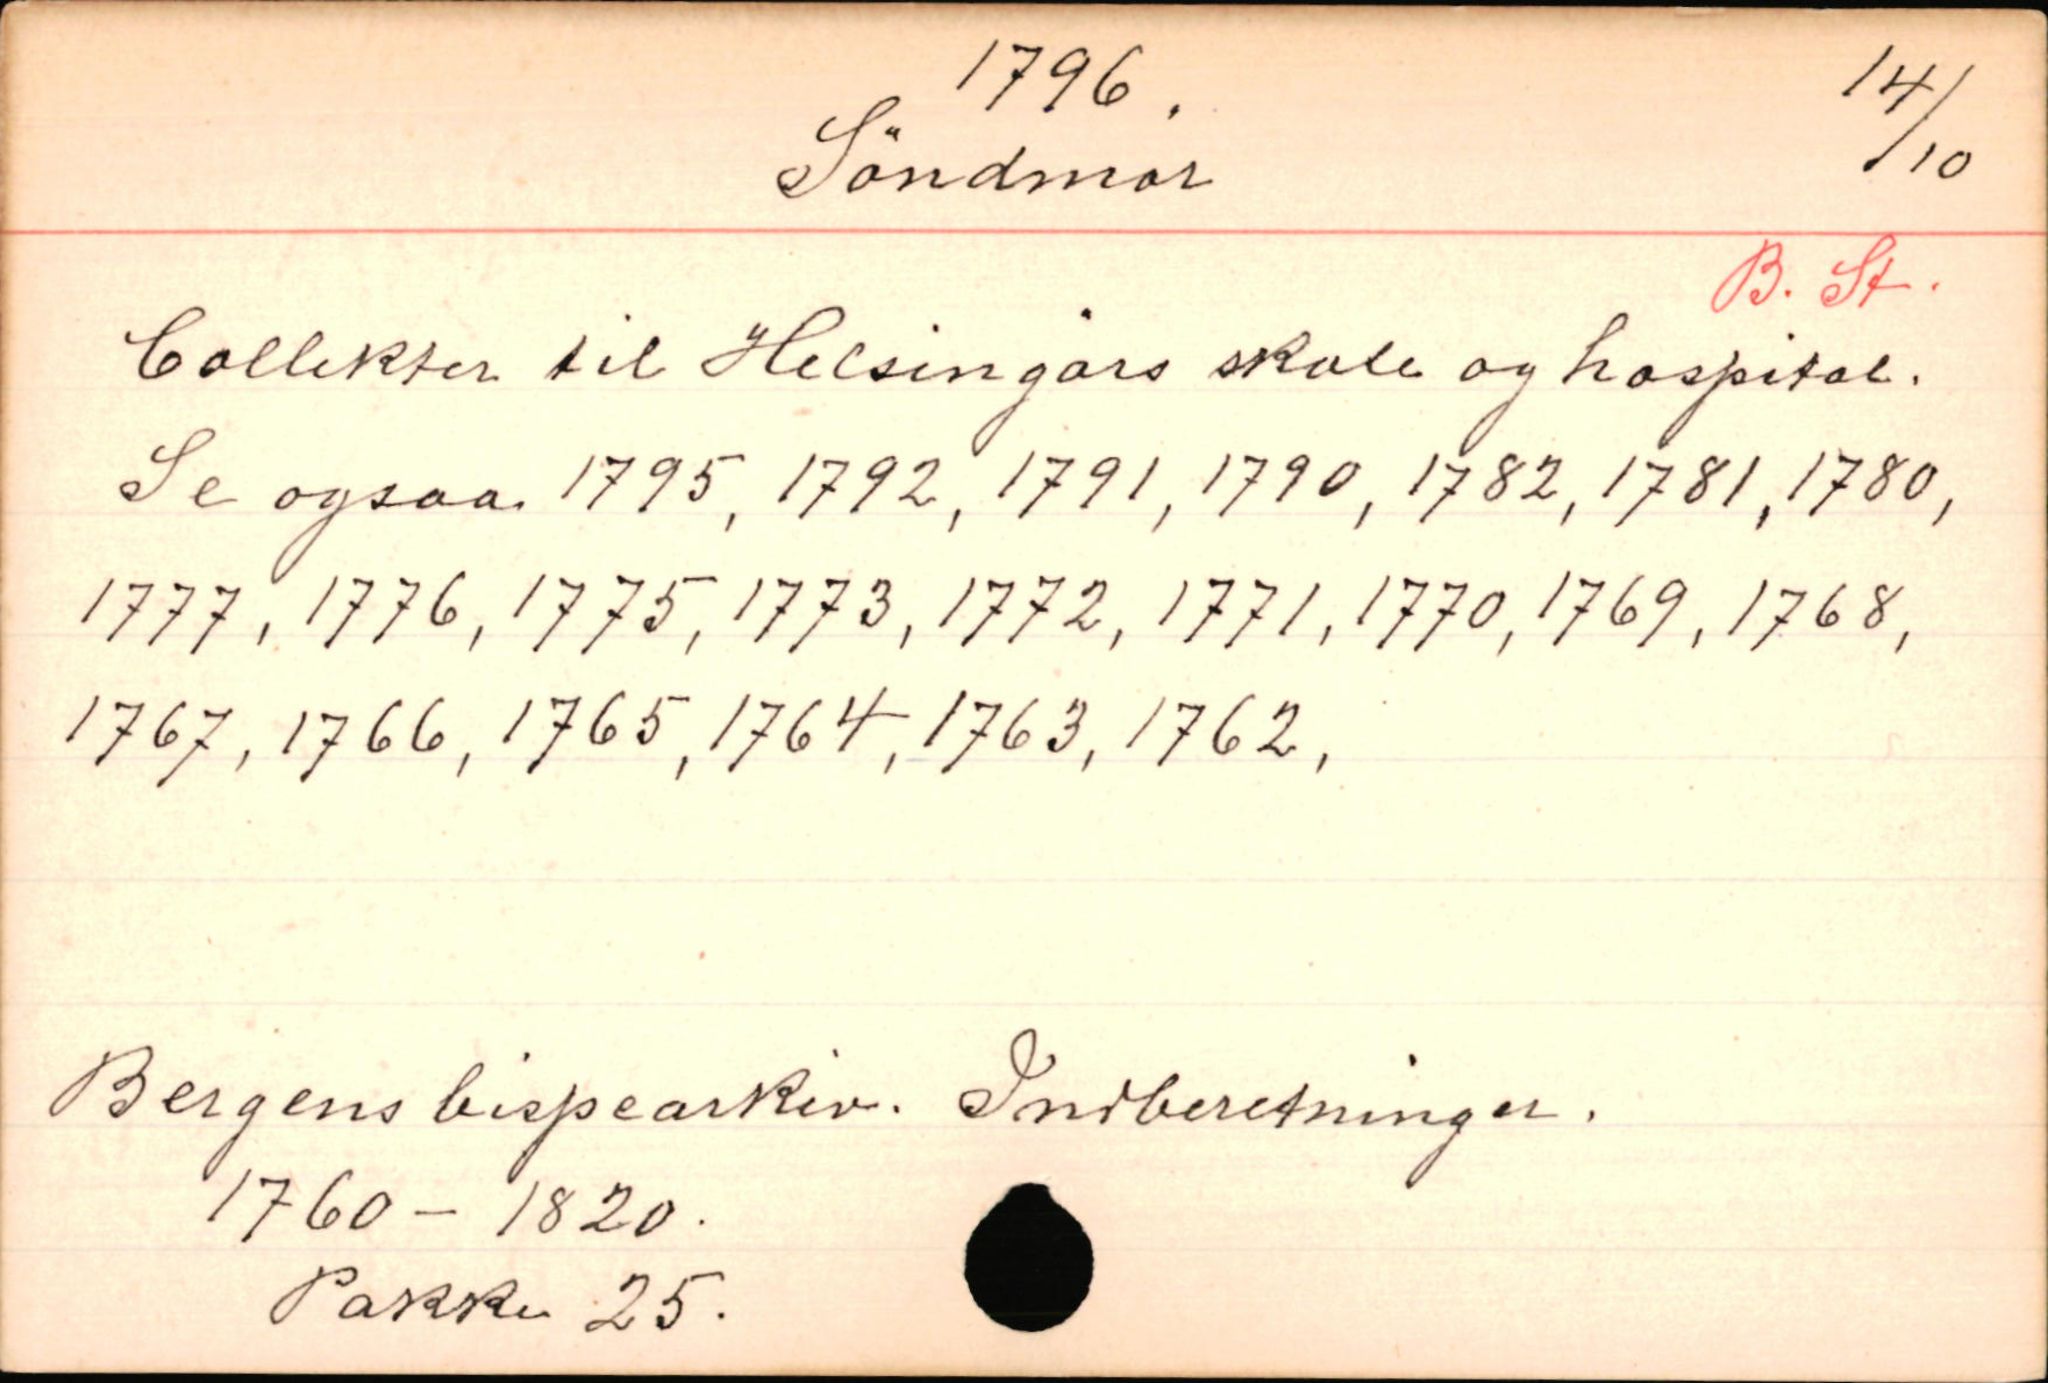 1796.
14/10
Söndmör
B. St.
Collekter til Helsingörs skole og hospital.
Se ogsaa 1795, 1792, 1791, 1790, 1782, 1781, 1780,
1777, 1776, 1775, 1773, 1772, 1771, 1770, 1769, 1768,
1767, 1766, 1765, 1764, 1763, 1762,
Bergens bispearkiv. Indberetninger.
1760 - 1820.
Pakke 25.